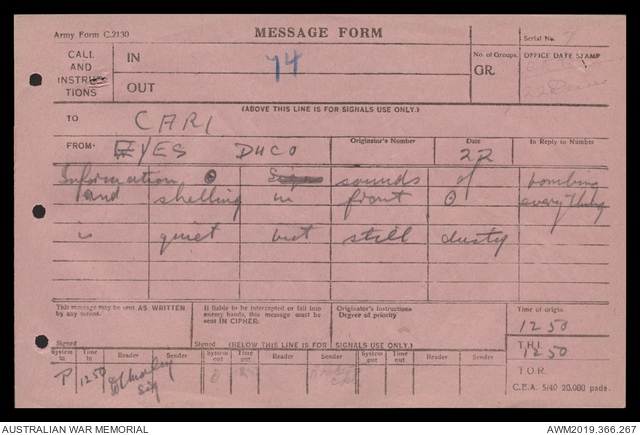 Army Form C.2130
MESSAGE FORM
Serial No. 7
CALL AND INSTRUCTIONS
IN
74
No. of Groups.
GR.
OFFICE DATE STAMP
OUT
(ABOVE THIS LINE IS FOR SIGNALS USE ONLY.)
TO CARI
FROM EYES DUCO
Originator's Number
Date 22
In Reply to Number
Information ⊙ sounds of bombing
and shelling in front ⊙ everything
is quiet but still dusty
This message may be sent AS WRITTEN by any means.
Signed
If liable to be intercepted or fall into enemy hands, this message must be sent IN CIPHER.
Signed
Originator's Instructions
Degree of priority
Time of origin
1250
(BELOW THIS LINE IS FOR SIGNALS USE ONLY.)
T.H.I.
1250
System in
Time in
Reader
Sender
System out
Time out
Reader
Sender
System out
Time out
Reader
Sender
T.O.R.
P 1250 Sig
C.E.A. 5/40 20,000 pads.
AUSTRALIAN WAR MEMORIAL
AWM2019.366.267